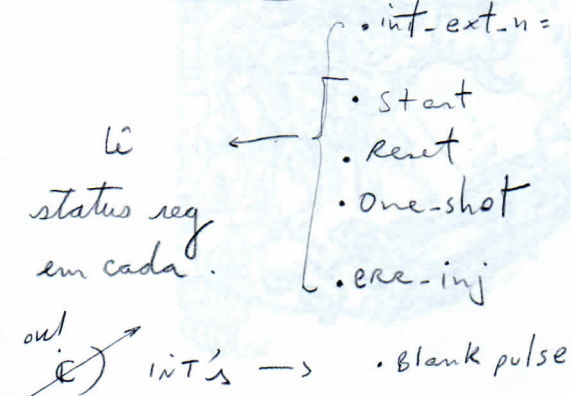 • int_ext_n =
• start
• Reset
• one-shot
• err-inj
Lê
status reg
em cada.
out
c) INT's → • Blank pulse